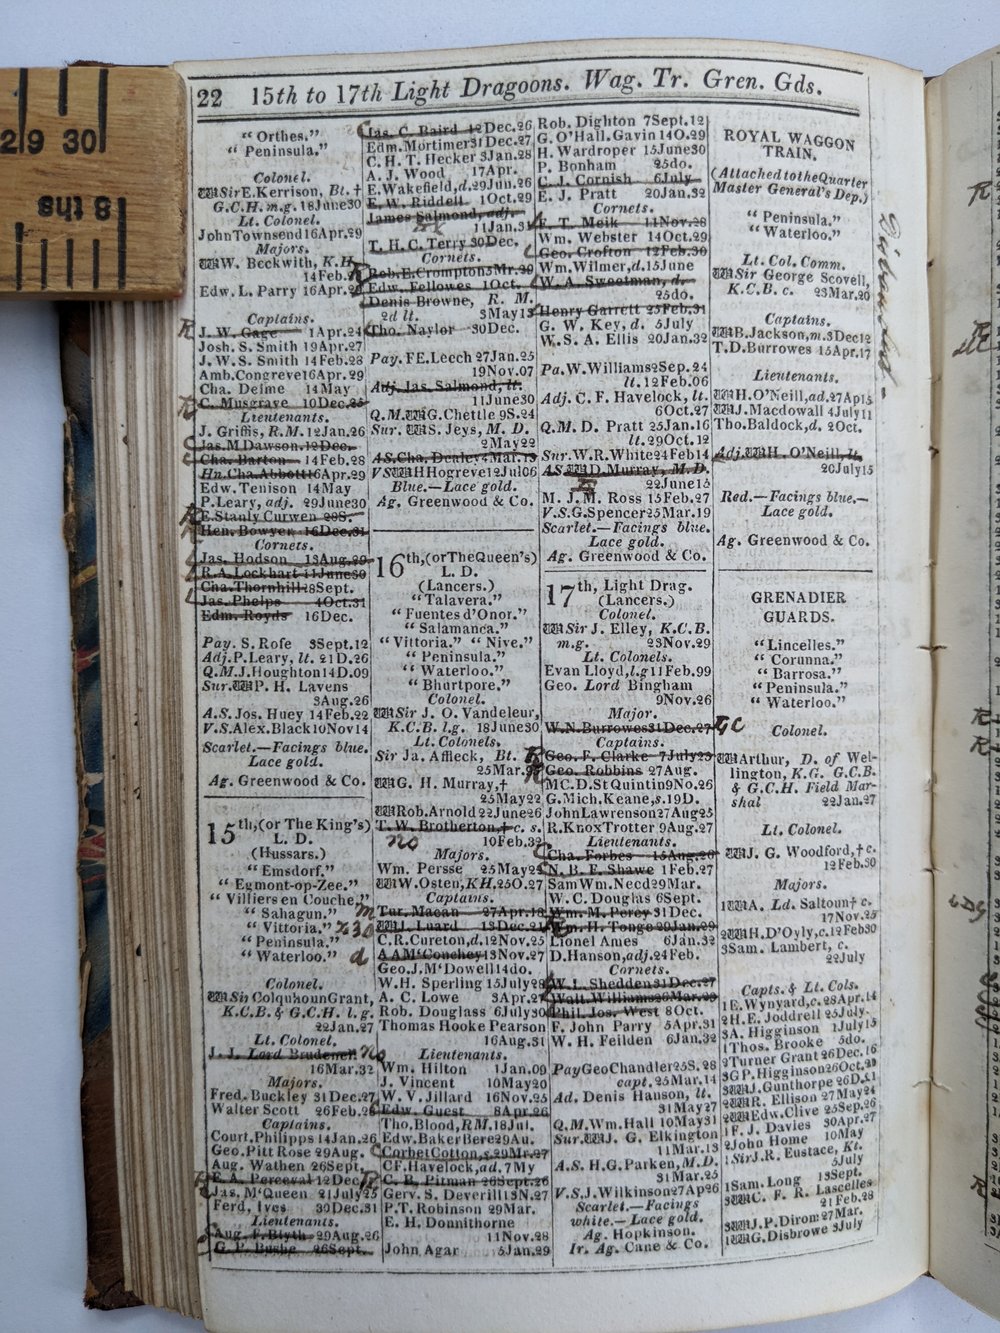 29 30
8 ths
22 15th to 17th Light Dragoons. Wag. Tr. Gren. Gds.
"Orthes."
"Peninsula."
Colonel.
Sir E. Kerrison, Bt. †
G.C.H. m.g. 18June30
Lt. Colonel.
John Townsend 16Apr.29
Majors.
W. Beckwith, K.H.
14Feb.28
Edw. L. Parry 16Apr.29
Captains.
J. W. Gage 1Apr.24
Josh. S. Smith 19Apr.27
J. W. S. Smith 14Feb.28
Amb. Congreve 16Apr.29
Cha. Deime 14May
C. Musgrave 10Dec.25
Lieutenants.
J. Griffis, R.M. 12Jan.26
Jas. M Dawson. 12Dec.
Cha. Barton 14Feb.28
Hn. Cha. Abbott 16Apr.29
Edw. Tenison 14May
P. Leary, adj. 29June30
E. Stanly Curwen 28S.
Hen. Bowyer 16Dec.31
Cornets.
Jas. Hodson 13Aug.29
R. A. Lockhart 11June30
Cha. Thornhill 28Sept.
Jas. Phelps 4Oct.31
Edm. Royds 16Dec.
Pay. S. Rofe 3Sept.12
Adj. P. Leary, lt. 21D.26
Q.M. J. Houghton 14D.09
Sur. P. H. Lavens
3Aug.26
A.S. Jos. Huey 14Feb.22
V.S. Alex. Black 10Nov14
Scarlet.—Facings blue.
Lace gold.
Ag. Greenwood & Co.
15th,(or The King's)
L. D.
(Hussars.)
"Emsdorf."
"Egmont-op-Zee."
"Villiers en Couche."
"Sahagun."
"Vittoria."
"Peninsula."
"Waterloo."
Colonel.
Sir Colquhoun Grant,
K.C.B. & G.C.H. l.g.
22Jan.27
Lt. Colonel.
J. J. Lord Brudenell no
16Mar.32
Majors.
Fred. Buckley 31Dec.27
Walter Scott 26Feb.28
Captains.
Court. Philipps 14Jan.26
Geo. Pitt Rose 29Aug.
Aug. Wathen 26Sept.
E. A. Perceval 12Dec.
Jas. M'Queen 21July25
Ferd. Ives 30Dec.31
Lieutenants.
Aug. F. Blyth 29Aug.26
G. P. Bushe 26Sept.
Jas. C. Baird 12Dec.26
Edm. Mortimer 31Dec.27
C. H. T. Hecker 3Jan.28
A. J. Wood 17Apr.
E. Wakefield, d. 29Jun.26
E. W. Riddell 1Oct.29
James Salmond, adj.
11Jan.31
T. H. C. Terry 30Dec.
Cornets.
Rob. E. Crompton 5Mr.30
Edw. Fellowes 1Oct.
Denis Browne, R. M.
2d lt. 3May13
Tho. Naylor 30Dec.
Pay. FE. Leech 27Jan.25
19Nov.07
Adj. Jas. Salmond, lt.
11June30
Q.M. G. Chettle 9S.24
Sur. S. Jeys, M. D.
2May22
AS. Cha. Dealey 4Mar.13
VS HHogreve 12Jul06
Blue.—Lace gold.
Ag. Greenwood & Co.
16th,(or The Queen's)
L. D.
(Lancers.)
"Talavera."
"Fuentes d'Onor."
"Salamanca."
"Vittoria." "Nive."
"Peninsula."
"Waterloo."
"Bhurtpore."
Colonel.
Sir J. O. Vandeleur,
K.C.B. l.g. 18June30
Lt. Colonels.
Sir Ja. Affleck, Bt.
25Mar.
G. H. Murray,†
25May22
Rob. Arnold 22June26
T. W. Brotherton,† c. s.
no 10Feb.32
Majors.
Wm. Persse 25May22
W. Osten, KH. 25O.27
Captains.
Tur. Macan 27Apr.18
J. Luard 13Dec.21
C. R. Cureton, d. 12Nov.25
A A M'Conchey 13Nov.27
Geo. J. M'Dowell 14do.
W. H. Sperling 15July28
A. C. Lowe 3Apr.27
Rob. Douglass 6July30
Thomas Hooke Pearson
16Aug.31
Lieutenants.
Wm. Hilton 1Jan.09
J. Vincent 10May20
W. V. Jillard 16Nov.25
Edw. Guest 8Apr.26
Tho. Blood, RM. 18Jul.
Edw. Baker Bere 29Au.
Corbet Cotton, s. 29Mr.27
CF. Havelock, ad. 7My
C. R. Pitman 26Sept.26
Gerv. S. Deverill 13N.27
P.T. Robinson 29Mar.
E. H. Donnithorne
11Nov.28
John Agar 5Jan.29
Rob. Dighton 7Sept.12
G. O'Hall. Gavin 14O.29
H. Wardroper 15June30
P. Bonham 25do.
C. J. Cornish 6July
E. J. Pratt 20Jan.32
Cornets.
F. T. Meik 11Nov.28
Wm. Webster 14Oct.29
Geo. Crofton 12Feb.30
Wm. Wilmer, d. 15June
W. A. Sweetman, d.
25do.
Henry Garrett 25Feb.31
G. W. Key, d. 5July
W. S. A. Ellis 20Jan.32
Pa. W. Williams 2Sep.24
lt. 12Feb.06
Adj. C. F. Havelock, lt.
6Oct.27
Q.M. D. Pratt 25Jan.16
lt. 29Oct.12
Sur. W. R. White 24Feb14
AS. D. Murray, M. D.
22June15
M. J. M. Ross 15Feb.27
V.S. G. Spencer 25Mar.19
Scarlet.—Facings blue.
Lace gold.
Ag. Greenwood & Co.
17th, Light Drag.
(Lancers.)
Colonel.
Sir J. Elley, K.C.B.
m.g. 23Nov.29
Lt. Colonels.
Evan Lloyd, l.g 11Feb.99
Geo. Lord Bingham
9Nov.26
Major.
W. N. Burrowes 31Dec.27
Captains.
Geo. F. Clarke 7July23
Geo. Robbins 27Aug.
MC. D. St Quintin 9No.26
G. Mich. Keane, s. 19D.
John Lawrenson 27Aug25
R. Knox Trotter 9Aug.27
Lieutenants.
Cha. Forbes 15Aug.26
N. B. F. Shawe 1Feb.27
Sam Wm. Need 29Mar.
W. C. Douglas 6Sept.
Wm. M. Percy 31Dec.
Wm. H. Tonge 20Jan.29
Lionel Ames 6Jan.32
D. Hanson, adj. 24Feb.
Cornets.
W. L. Shedden 31Dec.27
Walt. Williams 26Mar.29
Phil. Jos. West 8Oct.
F. John Parry 5Apr.31
W. H. Feilden 6Jan.32
Pay Geo Chandler 25S.28
capt. 25Mar.14
Ad. Denis Hanson, lt.
31May27
Q.M. Wm. Hall 10May31
Sur. J. G. Elkington
11Mar.13
A.S. H.G. Parken, M.D.
31Mar.25
V.S. J. Wilkinson 27Ap26
Scarlet.—Facings
white.—Lace gold.
Ag. Hopkinson.
Ir. Ag. Cane & Co.
ROYAL WAGGON
TRAIN.
(Attached to the Quarter
Master General's Dep.)
"Peninsula."
"Waterloo."
Lt. Col. Comm.
Sir George Scovell,
K.C.B. c. 23Mar.20
Captains.
B. Jackson, m. 3Dec12
T.D. Burrowes 15Apr.17
Lieutenants.
H. O'Neill, ad. 27Ap15
J. Macdowall 4July11
Tho. Baldock, d. 2Oct.
Adj. H. O'Neill, lt.
20July15
Red.—Facings blue.—
Lace gold.
Ag. Greenwood & Co.
Disbanded
GRENADIER
GUARDS.
"Lincelles."
"Corunna."
"Barrosa."
"Peninsula."
"Waterloo."
Colonel.
Arthur, D. of Wel-
lington, K.G. G.C.B.
& G.C.H. Field Mar-
shal 22Jan.27
Lt. Colonel.
J. G. Woodford, † c.
12Feb.30
Majors.
1 A. Ld. Saltoun † c.
17Nov.25
2 H. D'Oyly, c. 12Feb30
3Sam. Lambert, c.
22July
Capts. & Lt. Cols.
1E. Wynyard, c. 28Apr.14
2H. E. Joddrell 25July.
3A. Higginson 1July15
1Thos. Brooke 5do.
2Turner Grant 26Dec.16
3G P. Higginson 26Oct.20
3 J. Gunthorpe 26D.21
2 R. Ellison 27May24
2 Edw. Clive 25Sep.26
1F. J. Davies 30Apr.27
2John Home 10May
1Sir J. R. Eustace, Kt.
5July
1Sam. Long 13Sept.
3 C. F. R. Lascelles
21Feb.28
3 J.P. Dirom 27Mar.
1 G. Disbrowe 3July